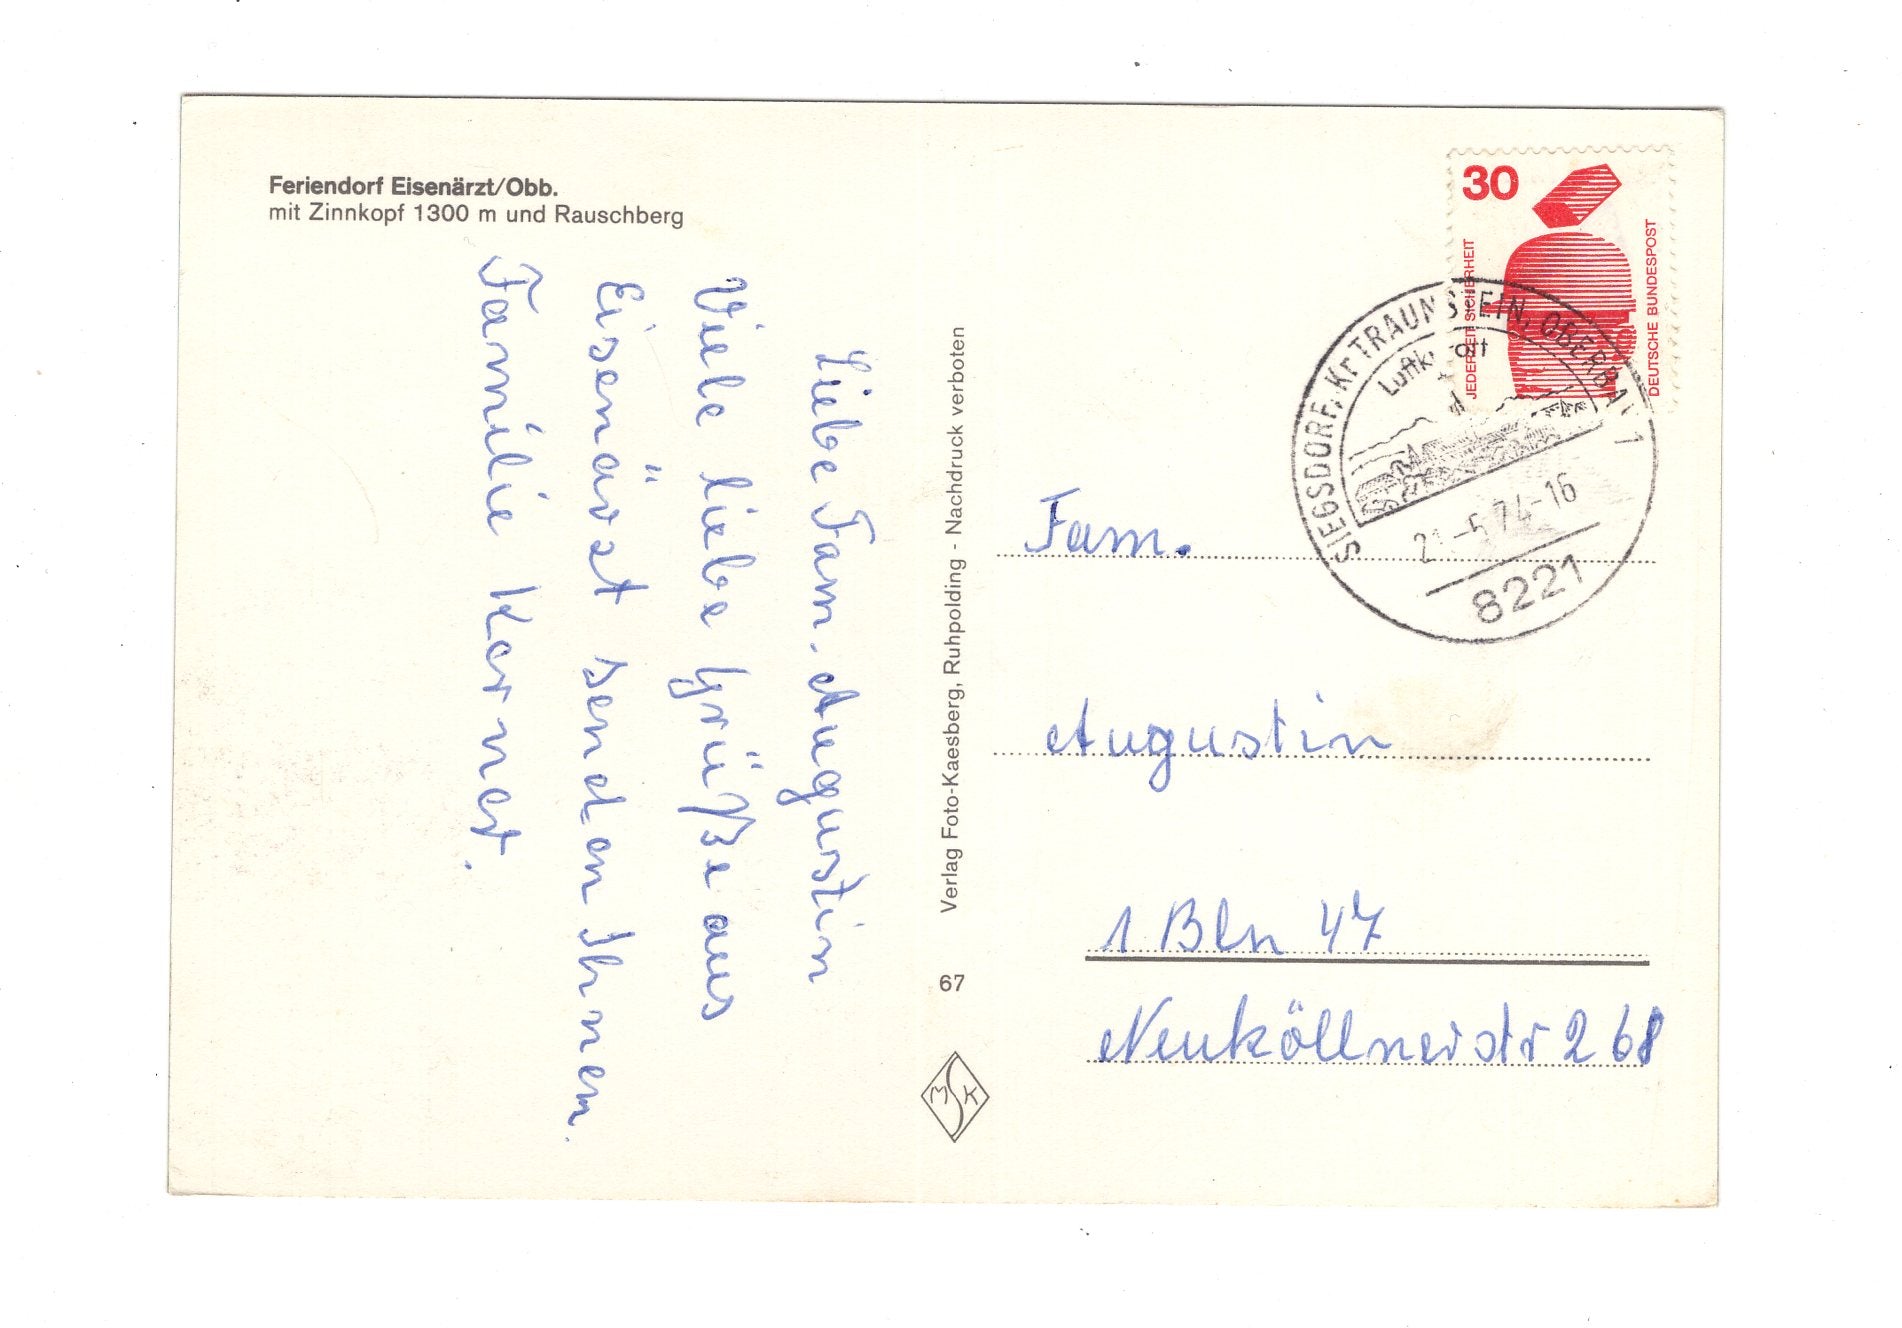 Feriendorf Eisenärzt/Obb.
mit Zinnkopf 1300 m und Rauschberg
Liebe Fam. Augustin
Viele liebe Grüße aus
Eisenärzt senden Ihnen
Familie Kornet.
Verlag Foto-Kaesberg, Ruhpolding - Nachdruck verboten
67
M S K
30
JEDERZEIT SICHERHEIT
DEUTSCHE BUNDESPOST
SIEGSDORF, KR TRAUNSTEIN, OBERBAY 1
Luftkurort
5.74-16
8221
Fam.
Augustin
1 Bln 47
Neuköllnerstr 268